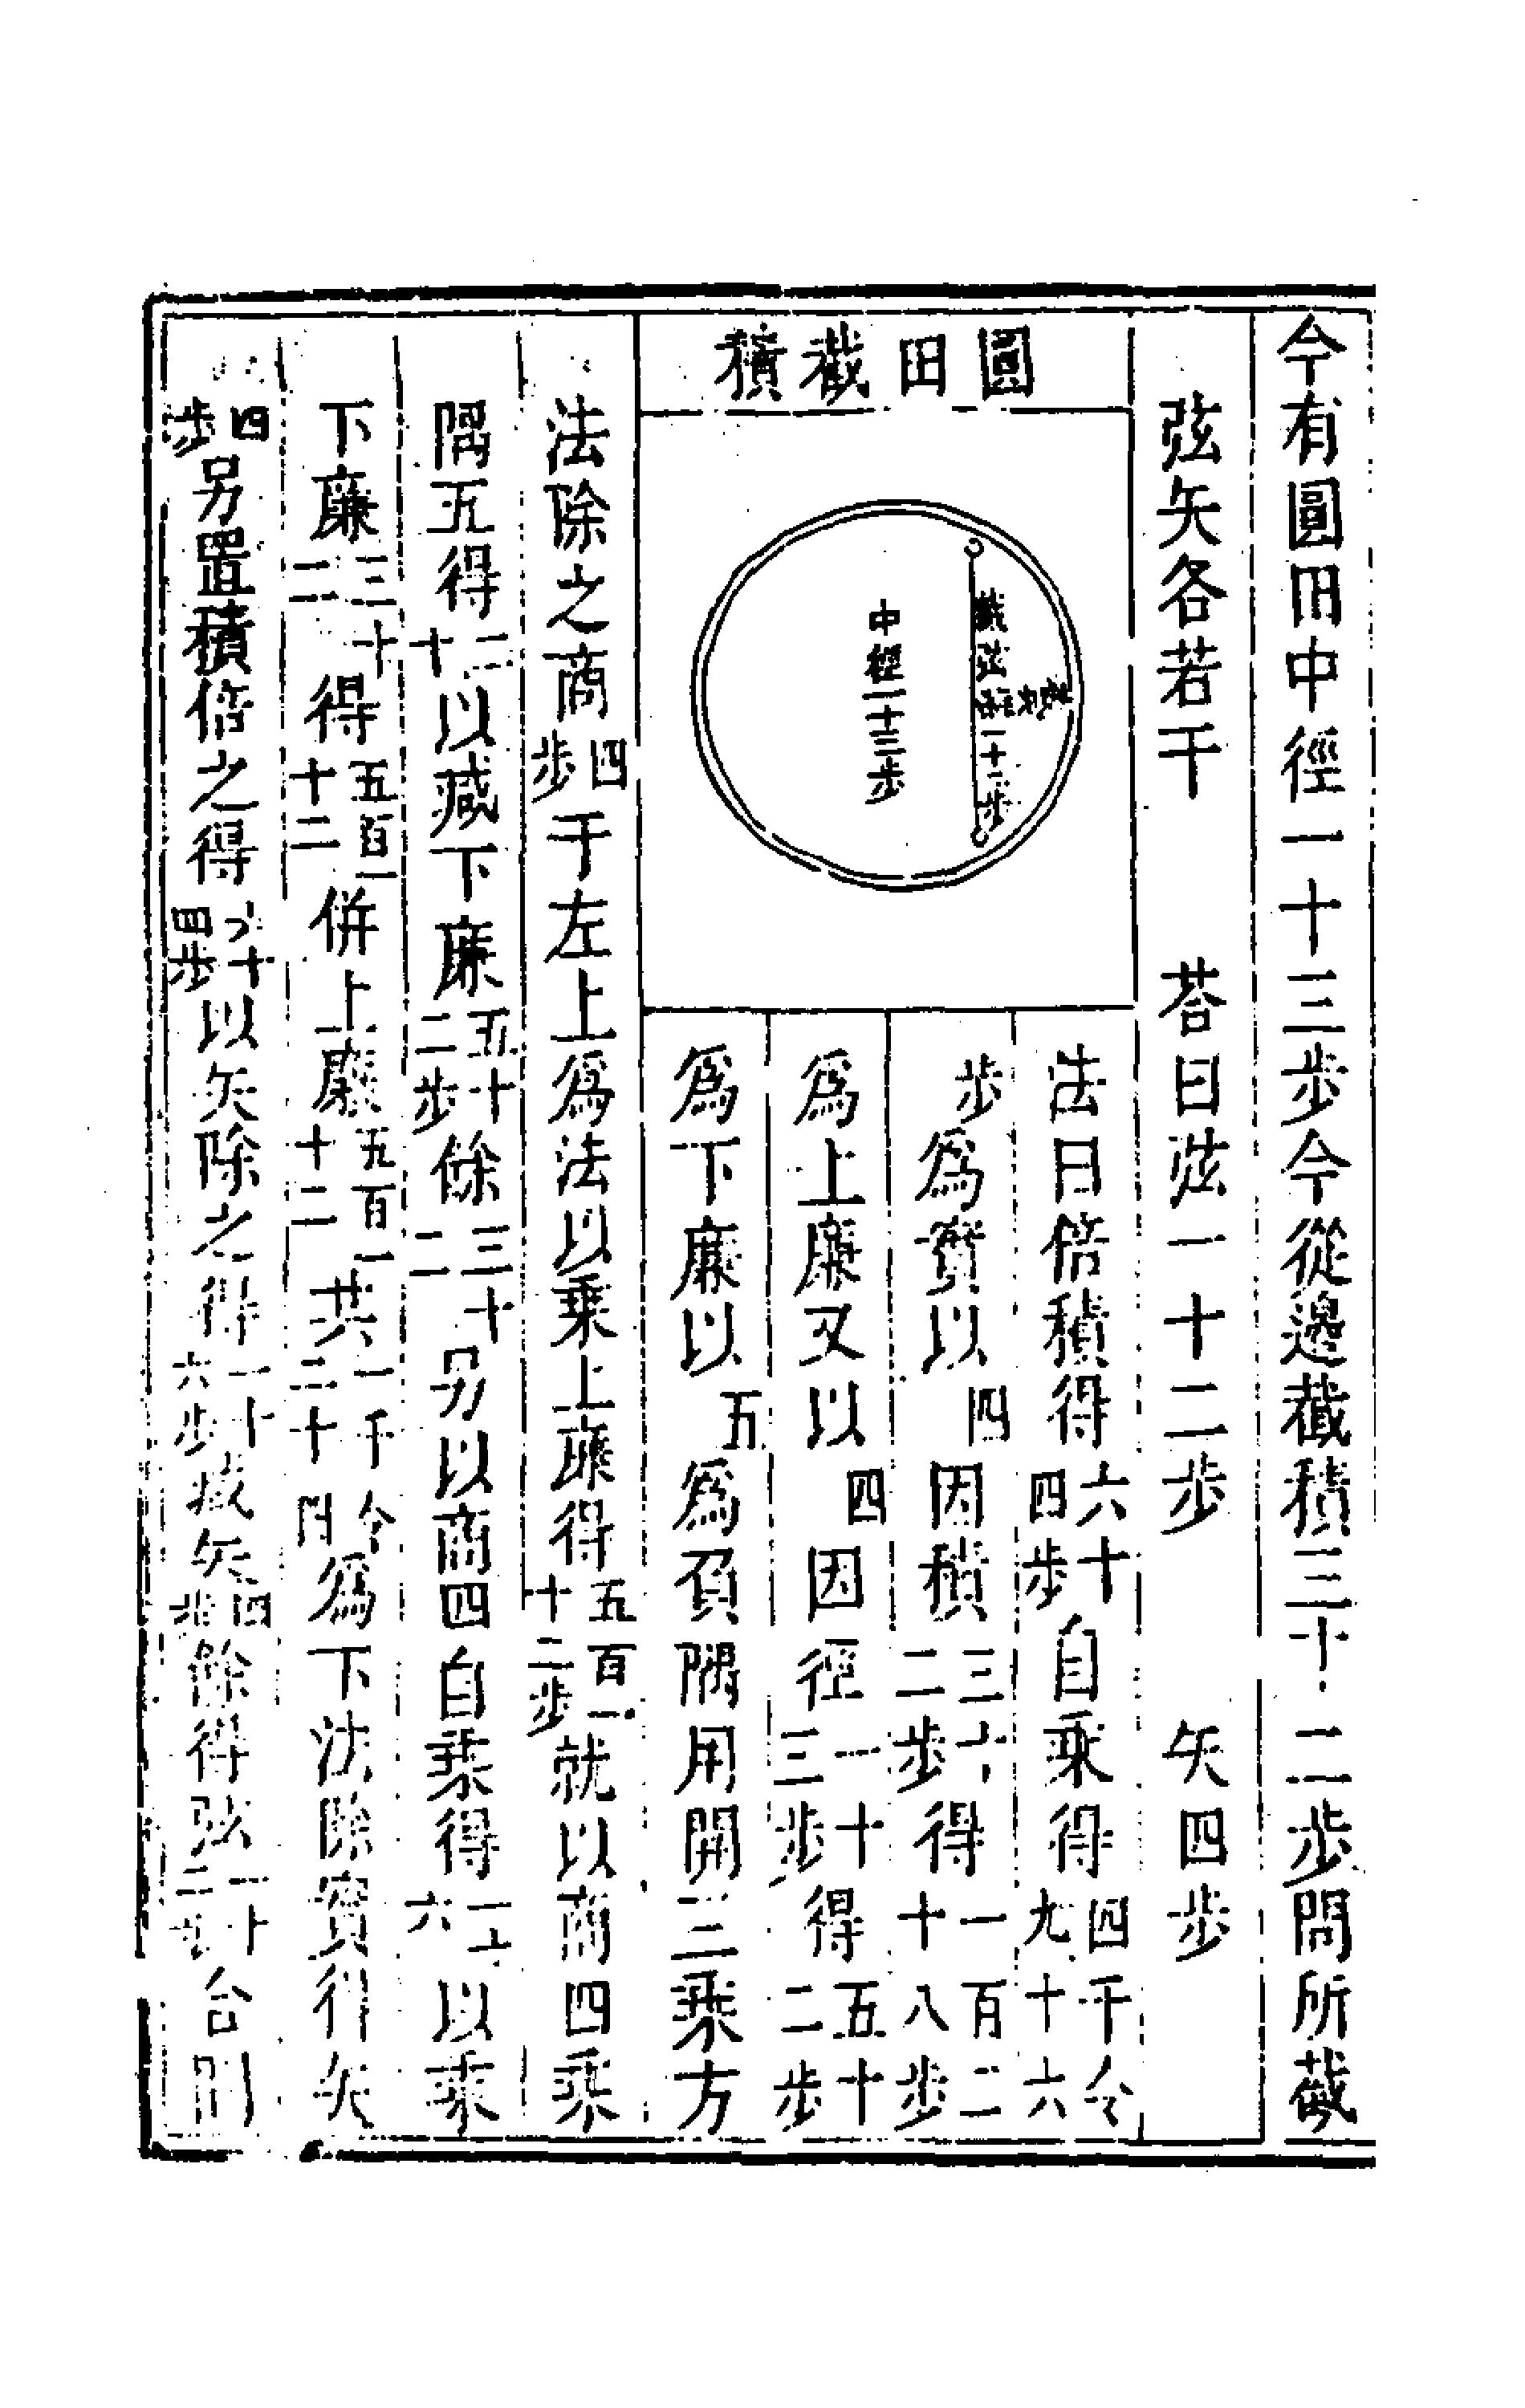 今有圓田中徑一十三步今從邊截積三十二步問所截
弦矢各若干 荅曰弦一十二步 矢四步
圓田截積
中徑一十三步
法曰倍積得六十四步自乘得四千令九十六
步為實以四因積三十二步得一百二十八步
為上廉又以四因徑一十三步得五十二步
為下廉以五為負隅用開三乘方
法除之商四步于左上為法以乘上廉得五百一十二步就以商四乘
隅五得二十以減下廉五十二步餘三十二另以商四自乘得一十六以乘
下廉三十二得五百一十二併上廉五百一十二共一千令二十四為下法除實得矢
四步另置積倍之得六十四步以矢除之得一十六步減矢四步餘得弦一十二步合問